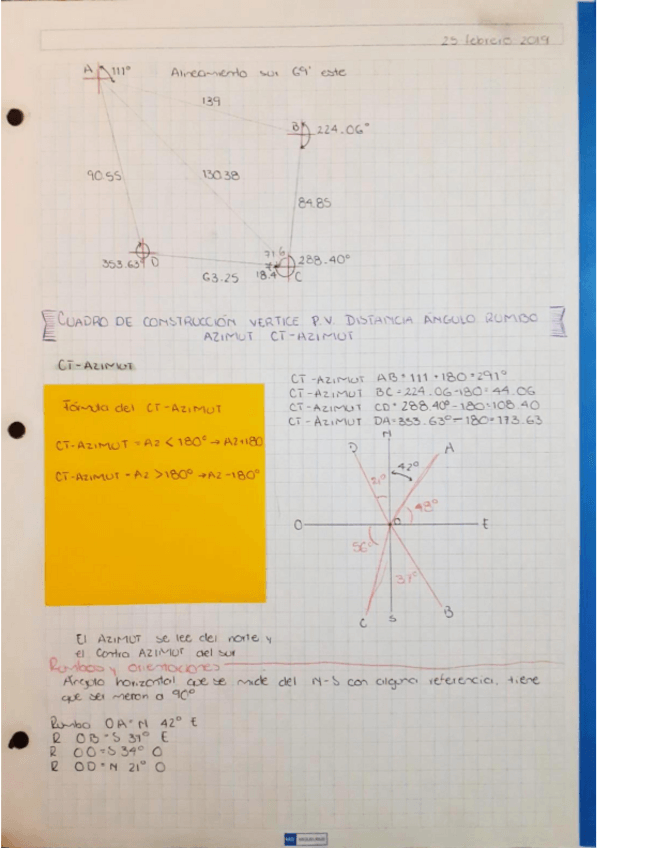 25 febrero 2019
A 111° Alineamiento sur 69° este
139
B 224.06°
90.55 130.38
84.85
71.6
288.40°
353.63° D
63.25 18.4 C
CUADRO DE CONSTRUCCIÓN VERTICE P.V. DISTANCIA ÁNGULO RUMBO
AZIMUT CT-AZIMUT
CT-AZIMUT
Fórmula del CT-AZIMUT
CT-AZIMUT = AZ < 180° → AZ+180
CT-AZIMUT = AZ > 180° → AZ-180°
CT-AZIMUT AB = 111 + 180 = 291°
CT-AZIMUT BC = 224.06-180 = 44.06
CT-AZIMUT CD = 288.40°-180=108.40
CT-AZIMUT DA=353.63°-180=173.63
N
D A
42°
21°
48°
O E
56°
37°
C S B
El AZIMUT se lee del norte y
el contra AZIMUT del sur
Rumbos y orientaciones
Ángulo horizontal que se mide del N-S con alguna referencia, tiene
que ser menor a 90°
Rumbo OA = N 42° E
R OB = S 37° E
R OC = S 34° O
R OD = N 21° O